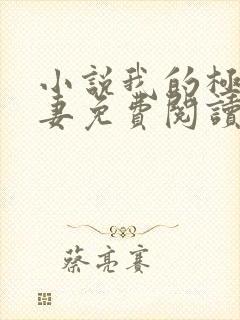 小說我的極
妻免費閱讀
蔡亮賽